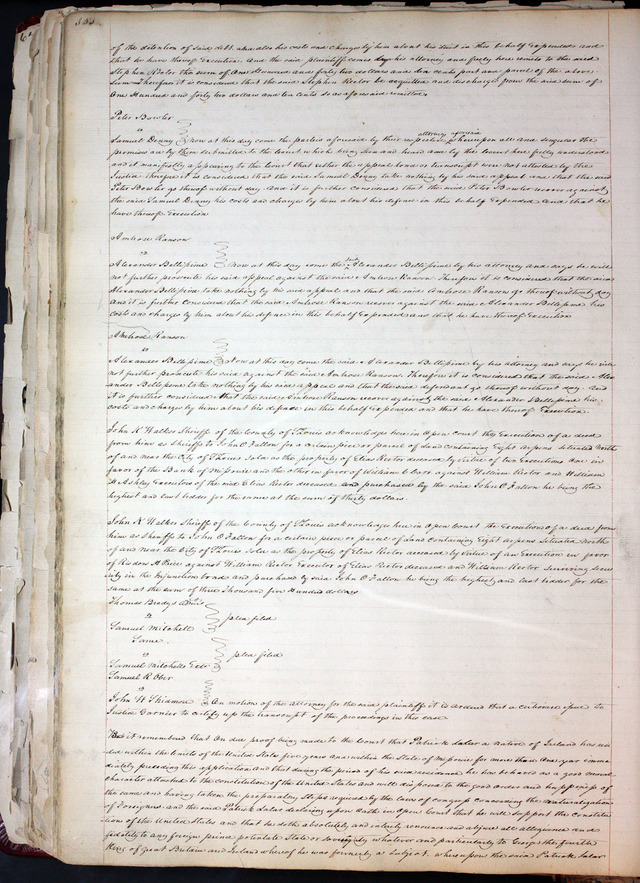 of the detention of said debt and also his costs and charges by him about his suit in this behalf expended and
that he have thereof Execution. And the said plaintiff comes by his attorney and freely here remits to the said
Stephen Rector the sum of One Hundred and forty two dollars and ten cents part and parcel of the above
sum Therefore it is considered that the said Stephen Rector be acquitted and discharged from the said sum of
One Hundred and forty two dollars and ten cents so as aforesaid remitted.
Peter Bowler
vs
Samuel Denny Now at this day come the parties aforesaid by their respective attorneys aforesaid whereupon all and singular the
premises as by them submitted to the Court which being seen and heard and by the Court here fully understood
and it manifestly appearing to the Court that neither the appeal bond or transcript were not attested by the
Justice Therefore it is considered that the said Samuel Denny take nothing by his said appeal and that the said
Peter Bowler go thereof without day. And it is further considered that the said Peter Bowler recover against
the said Samuel Denny his costs and charges by him about his defence in this behalf Expended And that he
have thereof Execution
Ambrose Ranson
vs
Alexander Bellissime Now at this day come the said Alexander Bellissime by his attorney and says he will
not further prosecute his said appeal against the said Ambrose Ranson. Therefore it is considered that the said
Alexander Bellissime take nothing by his said appeal and that the said Ambrose Ranson go thereof without day
and it is further Considered that the said Ambrose Ranson recover against the said Alexander Bellissime his
costs and charges by him about his defence in this behalf Expended and that he have thereof Execution
Ambrose Ranson
vs
Alexander Bellissime Now at this day come the said Alexander Bellissime by his attorney and says he will
not further prosecute his said against the said Ambrose Ranson. Therefore it is considered that the said Alex
ander Bellissime take nothing by his said appeal and that the said defendant go thereof without day. And
it is further considered that the said Ambrose Ranson recover against the said Alexander Bellissime his
costs and charges by him about his defence in this behalf Expended and that he have thereof Execution.
John K Walker Sheriff of the County of St Louis acknowledges here in Open Court the Execution of a deed
from him as Sheriff to John O Fallon for a certain piece or parcel of Land containing Eight arpens situated North
of and near the City of St Louis sold as the property of Elias Rector deceased by virtue of two Executions One in
favor of the Bank of Missouri and the other in favor of William C Carr against William Rector and William
H Ashley Executors of the said Elias Rector deceased and purchased by the said John O Fallon he being the
highest and last bidder for the same at the sum of thirty dollars
John K Walker Sheriff of the County of St Louis acknowledges here in Open Court the Execution of a deed from
him as Sheriff to John O Fallon for a certain piece or parcel of Land Containing Eight arpens situated North
of and near the City of St Louis Sold as the property of Elias Rector deceased by Virtue of an Execution in favor
of Risdon H Price against William Rector Executor of Elias Rector deceased and William Rector Surviving secu
rity in the Injunction bond and purchased by said John O Fallon he being the highest and last bidder for the
same at the sum of three Thousand five Hundred dollars
Thomas Bradys Admrs
vs plea filed
Samuel Mitchell
Same
vs plea filed
Samuel Mitchells Extr
Samuel R Ober
vs
John H Skidmore On motion of the attorney for the said plaintiff it is ordered that a certiorari issue to
Justice Garnier to certify up the transcript of the proceedings in this case
Be it remembered that On due proof being made to the Court that Patrick Lalor a native of Ireland has resi
ded within the limits of the United States five years and within the State of Missouri for more than One year imme
diately preceding this application and that during the period of his said residence he has behaved as a good moral
character attached to the constitution of the United States and well disposed to the good order and happiness of
the same and having taken the preparatory steps required by the laws of congress concerning the naturalization
of Foreigners and the said Patrick Lalor declaring upon Oath in Open Court that he will support the constitu
tion of the United States and that he doth absolutely and entirely renounce and abjure all allegiance and
fidelity to any foreign prince potentate State or sovereignty whatever and particularly to George the fourth
King of Great Britain and Ireland whereof he was formerly a Subject. whereupon the said Patrick Lalor